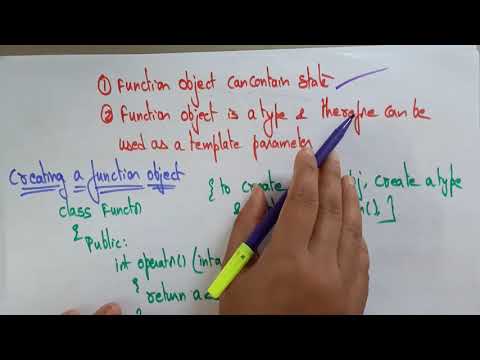 ① Function object can contain state
② Function object is a type & therefore can be
used as a template parameter
Creating a function object
{to create obj, create a type
class Functn
& ().]
{
Public:
int operatn() (int a
{ return a